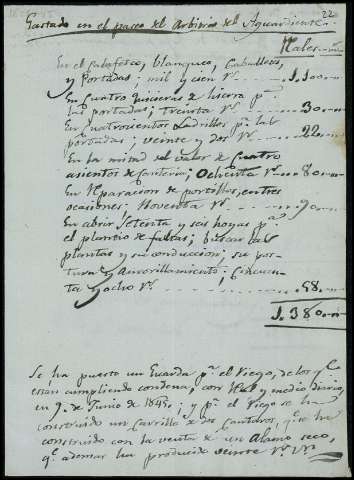 22
Gastado en el paseo del Arbitrio del Aguardiente.
Reales
En el Calafeteo, blanqueo, Caballetes,
y Portadas; mil y cien rs. 1.100
En Cuatro quicieras de hierro pa.
las portadas; treinta rs. 30
En Cuatrocientos Ladrillos pa. las
portadas; veinte y dos rs. 22
En la mitad del valor de Cuatro
asientos de Canteria; Ochenta rs. 80
En Reparacion de portillos, en tres
ocasiones; Noventa rs. 90
En abrir Setenta y seis hoyas pa.
el planteo de faltas; buscar las
plantas y su conduccion; su pos-
tura y Amorillamiento; Cincuen-
ta y ocho rs. 58
1.380
Se ha puesto un Guarda pa. el Riego, de los qe.
estan cumpliendo condena, con Real y medio diario,
en 9. de Junio de 1845.; y pa. el Riego se ha
construido un Carrillo de dos Cantaros, qe. se ha
construido con la venta de un Alamo seco,
qe. ademas ha producido veinte rs. vn.